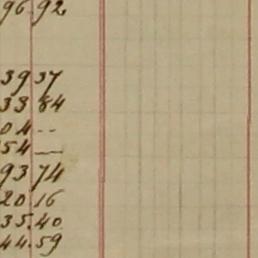 96 92
39 37
33 84
04 --
54 —
93 74
20 16
35.40
44.59